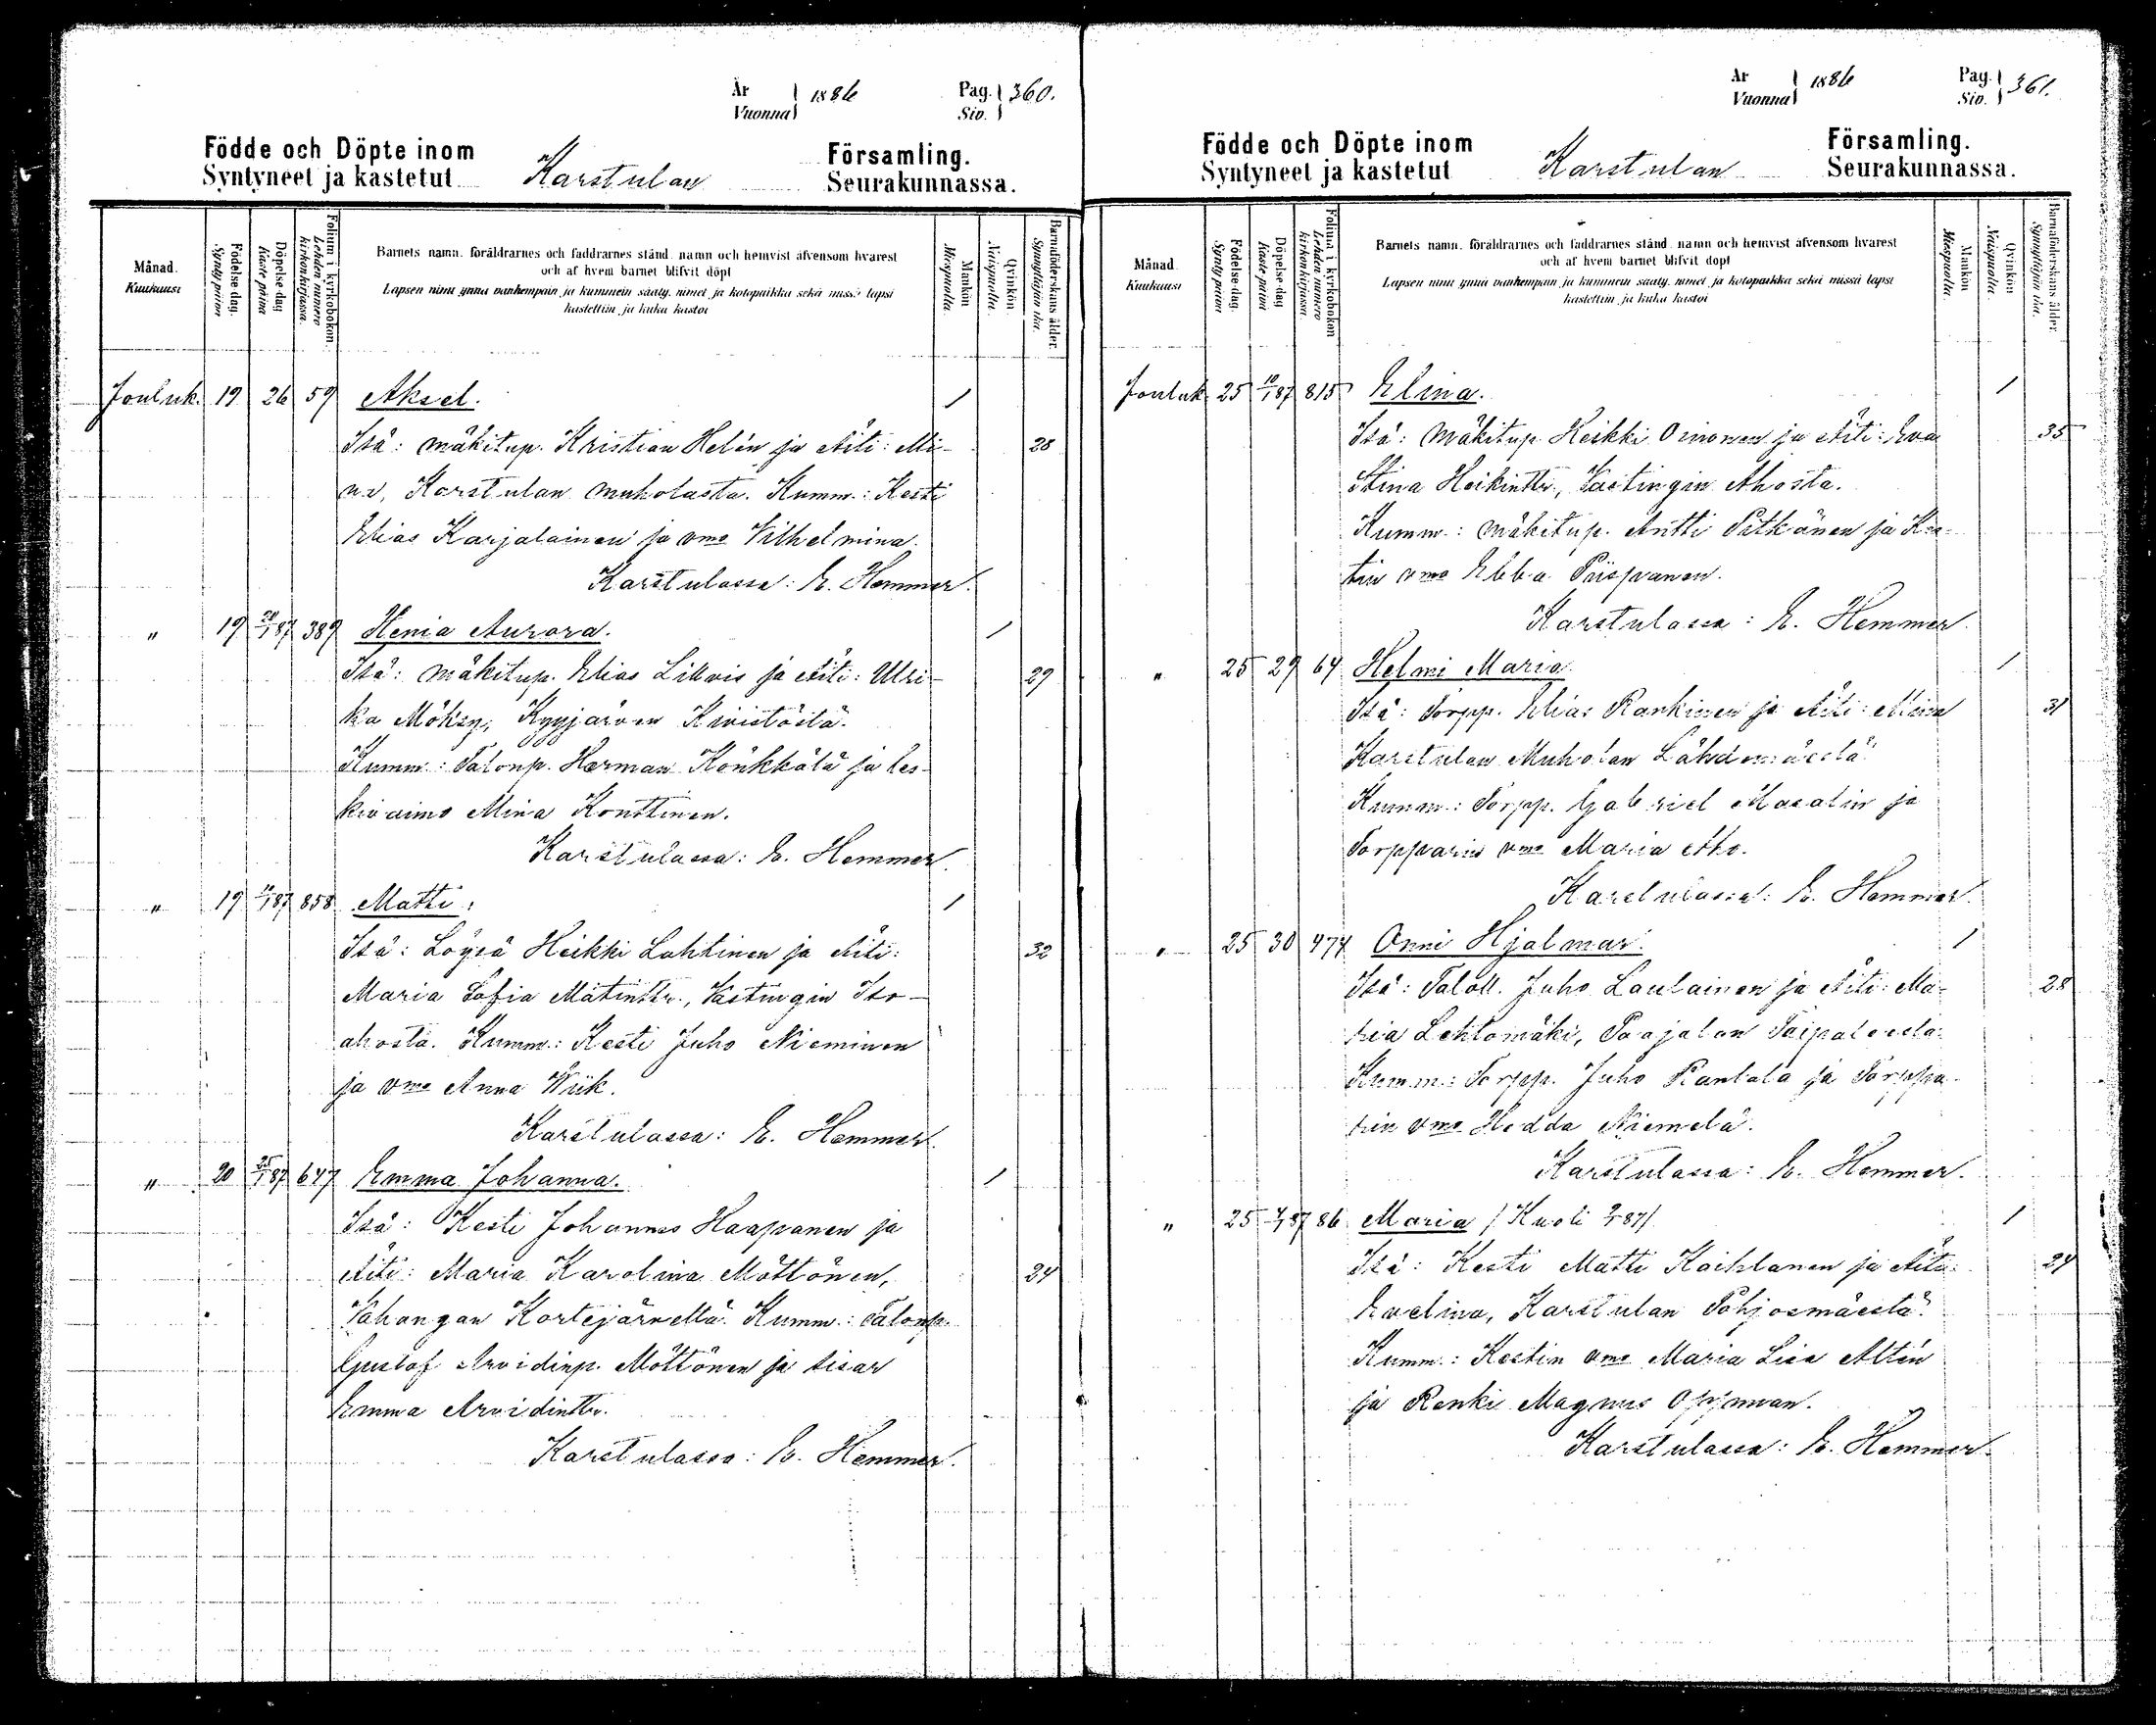 År Vuonna 1886 Pag. Siv. 360.
Födde och Döpte inom Karstulan Församling.
Syntyneet ja kastetut Seurakunnassa.
Månad. Kuukausi
Födelse dag. Synty päivä
Döpelse dag Kaste päivä
Folium i kyrkoboken. Lehden numero kirkonkirjassa.
Barnets namn, föräldrarnes och faddrarnes stånd, namn och hemvist äfvensom hvarest
och af hvem barnet blifvit döpt
Lapsen nimi ynnä vanhempain ja kummein sääty, nimet ja kotopaikka sekä missä lapsi
kastettiin ja kuka kastoi
Mankön Miespuolta.
Qvinkön. Naispuolta.
Barnaföderskans ålder. Synnyttäjän ikä.
Jouluk. 19 26 59 Aksel. /
Isä: Mäkitup. Kristian Helén ja Äiti: Mi- 28
na, Karstulan Muholasta. Kumm.: Kesti
Elias Karjalainen ja vmo Vilhelmina.
Karstulassa: E. Hemmer.
" 19 /1 87 389 Henia Aurora. /
Isä: Mäkitup. Elias Likvis ja Äiti: Ulri- 29
ka Möksy, Kyyjärven Kivistöstä.
Kumm: Talonp. Herman Könkkölä ja les-
kivaimo Mina Konttinen.
Karstulassa: E. Hemmer.
" 19 /1 87 858 Matti. /
Isä: Löysä Heikki Lahtinen ja Äiti: 32
Maria Sofia Matintr., Vastingin Iso-
ahosta. Kumm.: Kesti Juho Nieminen
ja vmo Anna Wiik.
Karstulassa: E. Hemmer.
" 20 25/1 87 647 Emma Johanna. /
Isä: Kesti Johannes Haapanen ja
Äiti: Maria Karolina Möttönen, 24
Vahangan Kortejärveltä. Kumm.: Talonp.
Gustaf Arvidinp. Möttönen ja sisar
Emma Arvidintr.
Karstulassa: E. Hemmer.
År Vuonna 1886 Pag. Siv. 361.
Födde och Döpte inom Karstulan Församling.
Syntyneet ja kastetut Seurakunnassa.
Månad. Kuukausi
Födelse dag. Synty päivä
Döpelse dag Kaste päivä
Folium i kyrkoboken Lehden numero kirkonkirjassa
Barnets namn, föräldrarnes och faddrarnes stånd, namn och hemvist äfvensom hvarest
och af hvem barnet blifvit döpt
Lapsen nimi ynnä vanhempain ja kummein sääty, nimet ja kotopaikka sekä missä lapsi
kastettiin ja kuka kastoi
Mankön Miespuolta.
Qvinkön Naispuolta.
Barnaföderskans ålder. Synnyttäjän ikä.
Jouluk 25 10/1 87 815 Elina. /
Isä: Mäkitup. Heikki Oinonen ja Äiti: Eva 35
Stina Heikintr., Vastingin Ahosta.
Kumm.: Mäkitup. Antti Pitkänen ja Kes-
tin vmo Ebba Piispanen.
Karstulassa: E. Hemmer.
" 25 29 64 Helmi Maria. /
Isä: Torpp. Elias Rankinen ja Äiti: Mina 31
Karstulan Muholan Lähdemäestä.
Kumm.: Torpp. Gabriel Masalin ja
Torpparin vmo Maria Aho.
Karstulassa: E. Hemmer.
" 25 30 474 Onni Hjalmar. /
Isä: Taloll. Juho Laulainen ja Äiti: Ma- 28
ria Lehtomäki, Paajalan Taipaleesta.
Kumm.: Torpp. Juho Rantala ja Torppa-
rin vmo Hedda Niemelä.
Karstulassa: E. Hemmer.
" 25 /1 87 86 Maria / Kuoli 87 / /
Isä: Kesti Matti Kaihlanen ja Äiti: 24
Evelina, Karstulan Pohjosmäestä.
Kumm.: Kestin vmo Maria Liisa Altén
ja Renki Magnus Oppman.
Karstulassa: E. Hemmer.